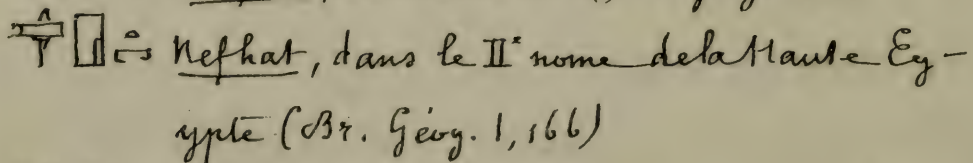 Nefhat, dans le II<sup>e</sup> nome de la Haute Eg-
ypte (Br. Géog. I, 166)